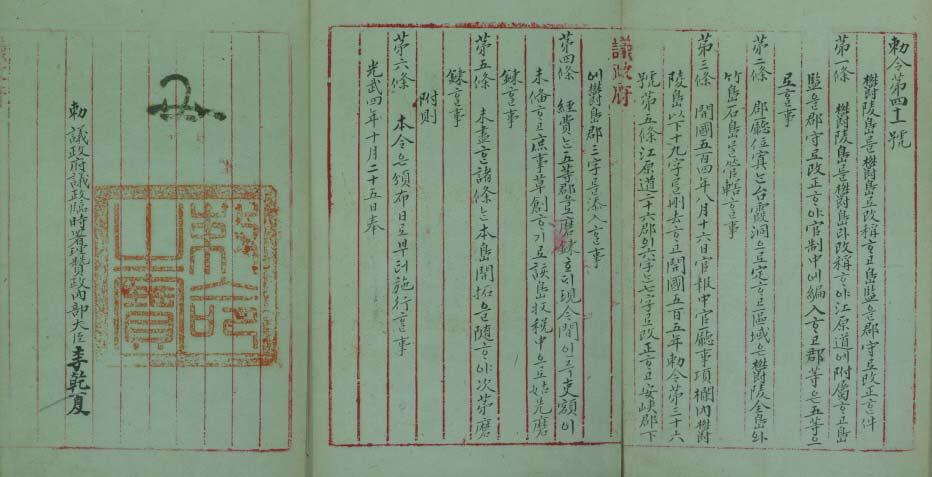 勅令第四十一號
欝陵島를欝島로改稱ᄒᆞ고島監을郡守로改正ᄒᆞᆫ件
第一條 欝陵島를欝島라改稱ᄒᆞ야江原道에附屬ᄒᆞ고島
監을郡守로改正ᄒᆞ야官制中에編入ᄒᆞ고郡等은五等으
로ᄒᆞᆯ事
第二條 郡廳位寘ᄂᆞᆫ台霞洞으로定ᄒᆞ고區域은欝陵全島와
竹島石島를管轄ᄒᆞᆯ事
第三條 開國五百四年八月十六日官報中官廳事項欄內欝
陵島以下十九字를刪去ᄒᆞ고開國五百五年勅令第三十六
號第五條江原道二十六郡의六字ᄂᆞᆫ七字로改正ᄒᆞ고安峽郡下
議政府
에欝島郡三字를添入ᄒᆞᆯ事
第四條 經費ᄂᆞᆫ五等郡으로磨鍊호ᄃᆡ現今間인즉吏額이
未備ᄒᆞ고庶事草創ᄒᆞ기로該島收稅中으로姑先磨
鍊ᄒᆞᆯ事
第五條 未盡ᄒᆞᆫ諸條ᄂᆞᆫ本島開拓을隨ᄒᆞ야次第磨
鍊ᄒᆞᆯ事
附則
第六條 本令은頒布日로부터施行ᄒᆞᆯ事
光武四年十月二十五日奉
勅命之寶
勅 議政府議政臨時署理贊政內部大臣李乾夏